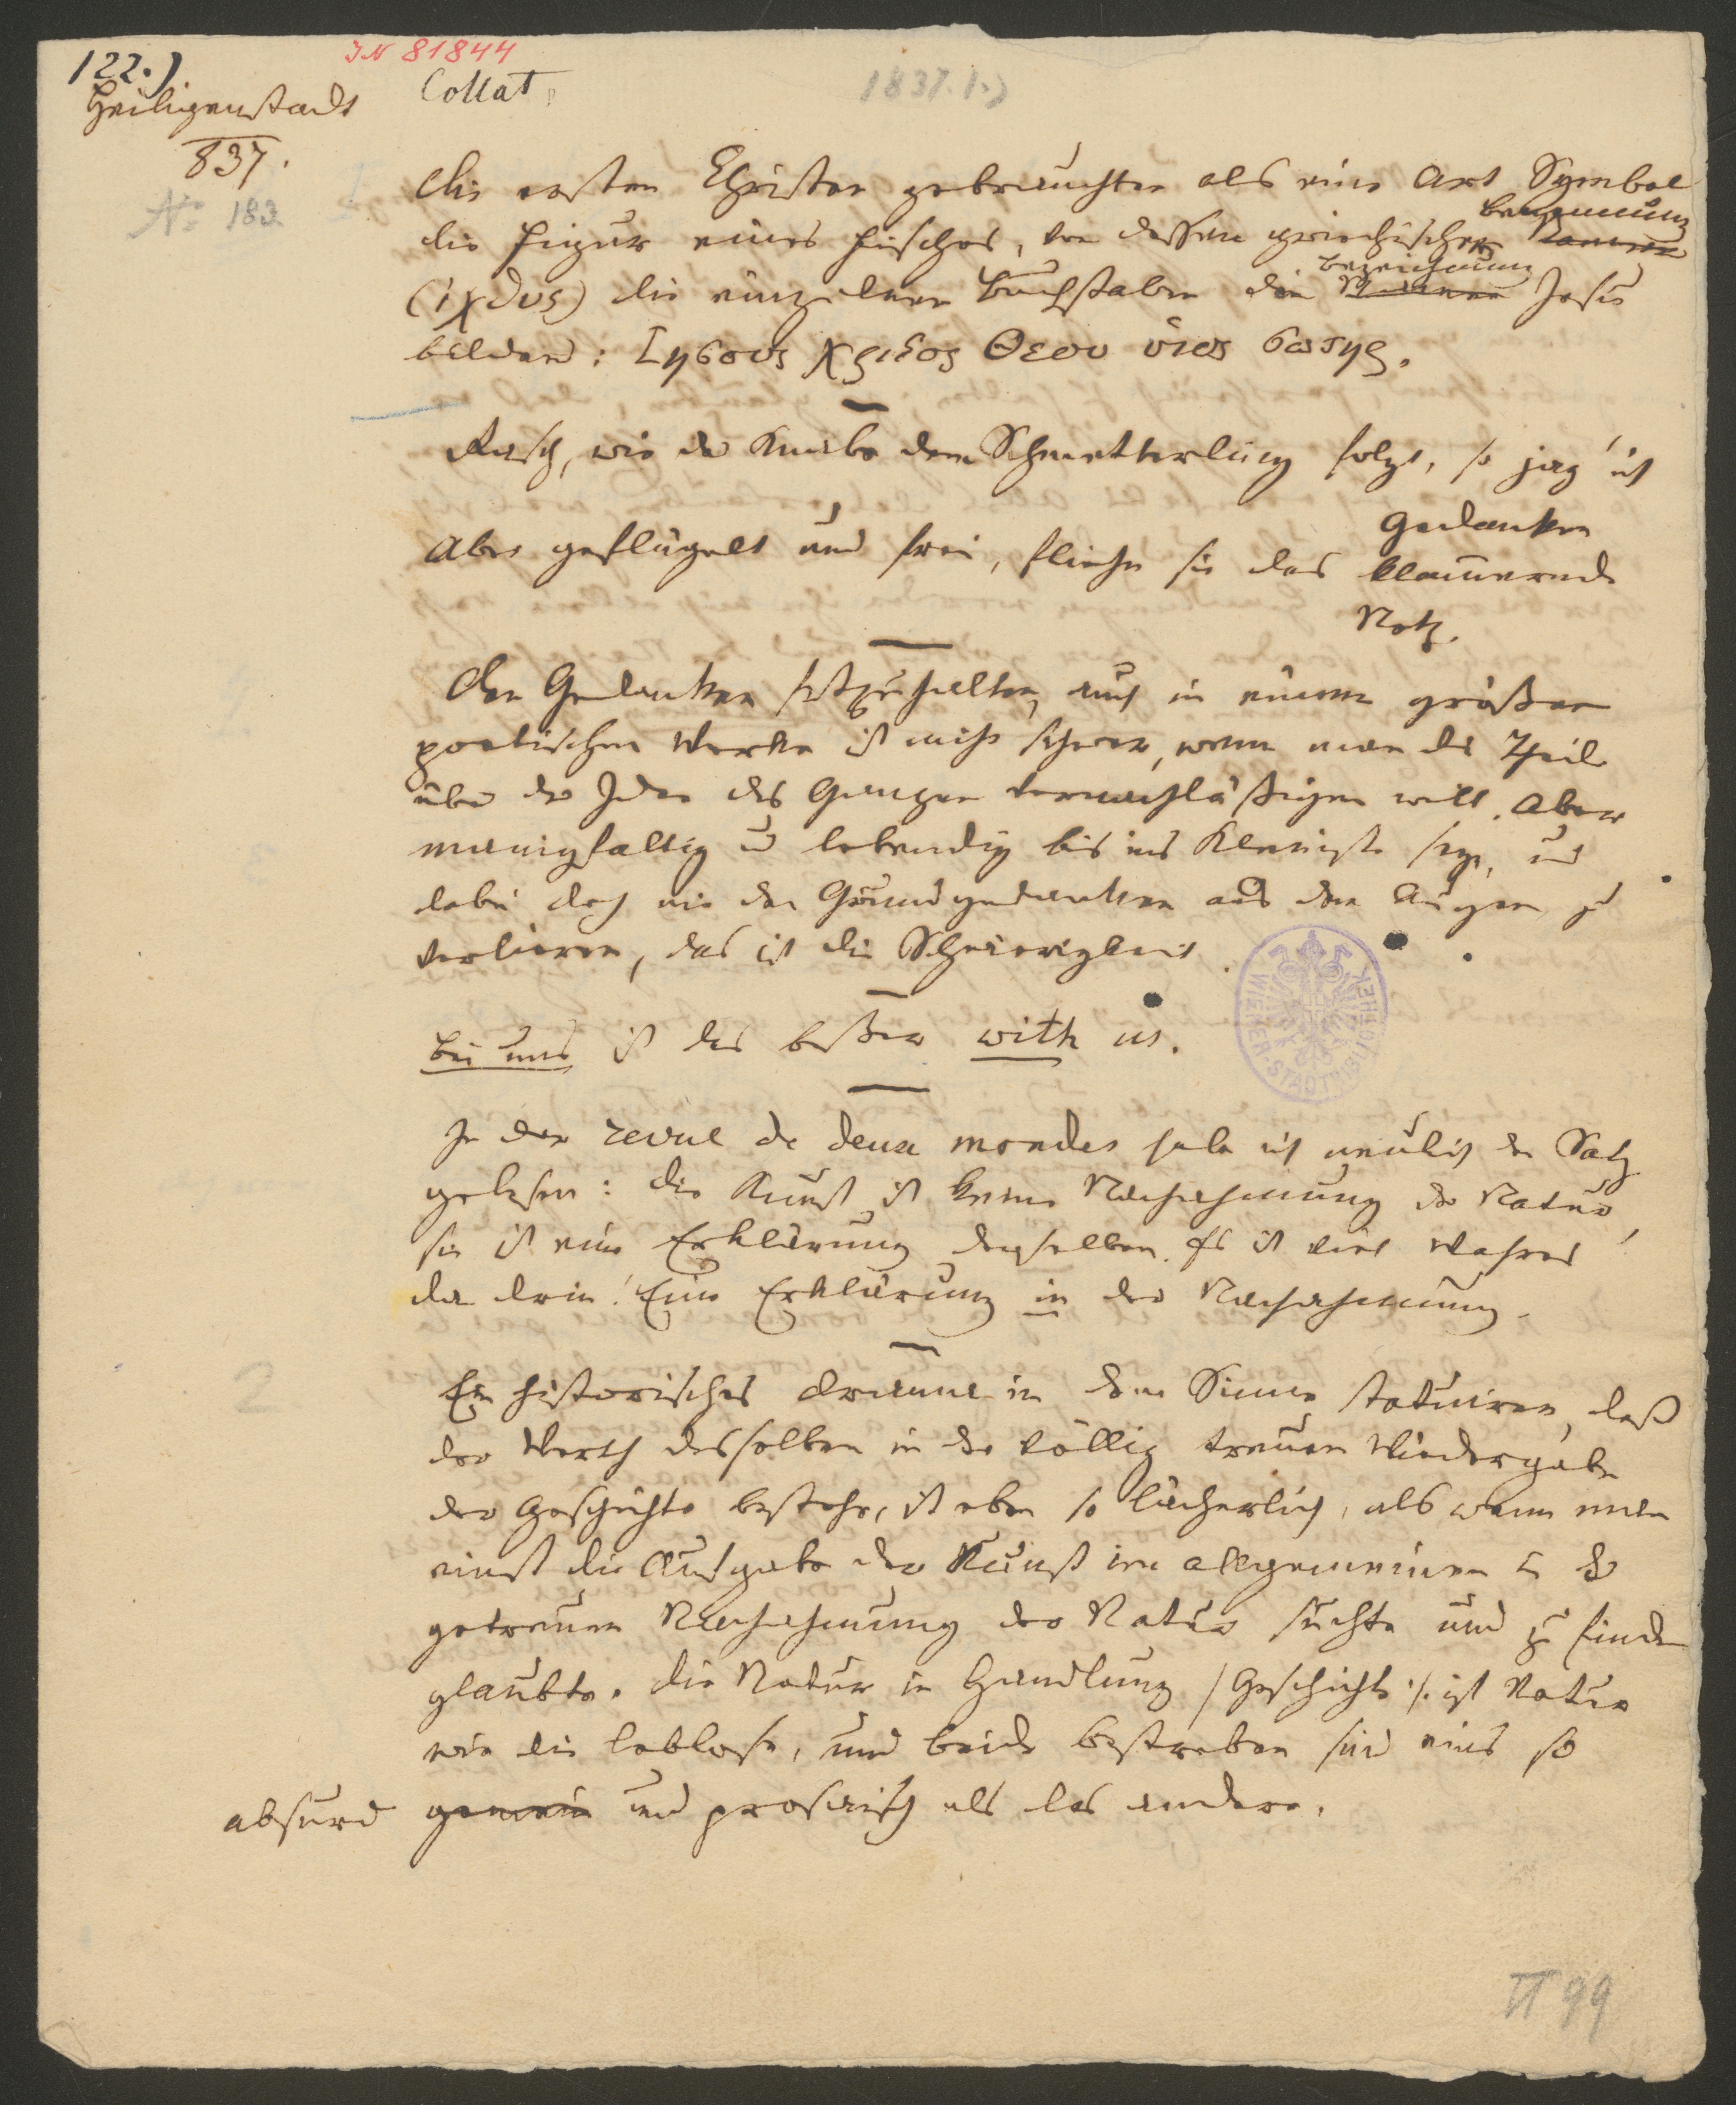 122.)
JN 81844
Collat.
1837. 1.)
Heiligenstadt
837.
No 182
Die ersten Christen gebrauchten als eine Art Symbol
die Figur eines Fisches, von dessen griechischer Namen Benennung
(ιχϑυς) die einzelnen Buchstaben den Namen Bezeichnung Jesus
bilden: Ιησους χριςος Θεου ὑιος σωτηρ.
Rasch, wie der Knabe dem Schmetterling folgt, so jag' ich
Gedanken
Aber geflügelt und frei, fliehn sie das klammernde
Netz.
Den Gedanken festzuhalten, auch in einem größern
poetischen Werke ist nicht schwer, wenn man die Theile
über der Idee des Ganzen vernachläßigen will. Aber
manigfaltig u lebendig bis ins Kleinste seyn, und
dabei doch nie den Grundgedanken aus den Augen zu
verlieren, das ist die Schwierigkeit.
bei uns ist das beßer with us.
In der revue de deux mondes habe ich neulich den Satz
gelesen: die Kunst ist keine Nachahmung der Natur,
sie ist eine Erklärung derselben. Es ist viel Wahres
da drin! Eine Erklärung in der Nachahmung.
Ein historisches Drama in dem Sinne statuiren, daß
der Werth desselben in der völlig treuen Wiedergabe
der Geschichte bestehe, ist eben so lächerlich, als wenn man
einst die Aufgabe der Kunst im allgemeinen in der
getreuen Nachahmung der Natur suchte und zu finden
glaubte. Die Natur in Handlung /Geschichte/. ist Natur
wie die leblose, und beide bestreben sind eins so
absurd gemein und prosaisch als das andere.
WIENER STADTBIBLIOTHEK
2
π 99